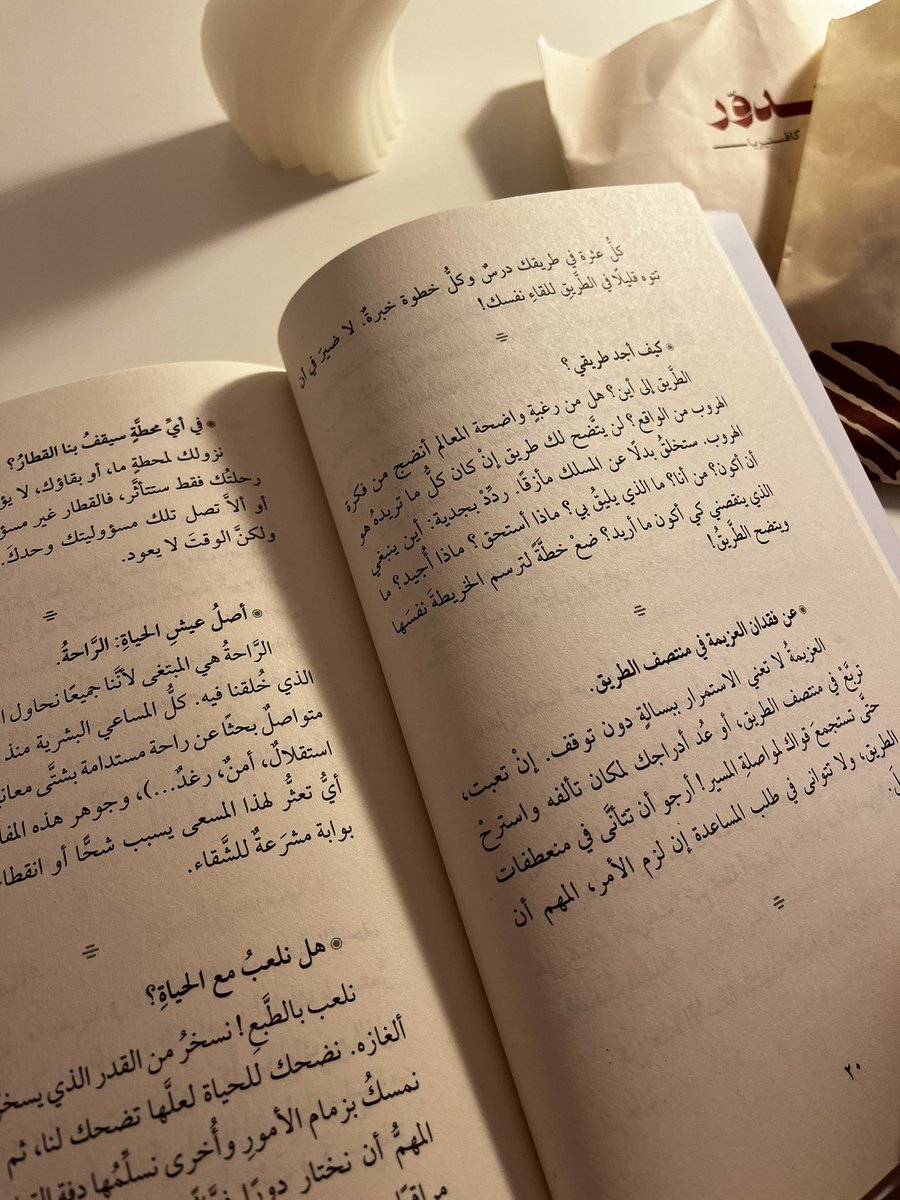 ـدوّر
كافتيريا
كلُّ عثرة في طريقك درسٌ وكلُّ خطوة خبرةٌ. لا ضيرَ في أن
تتوه قليلًا في الطَّريق للقاءِ نفسك!
كيف أجد طريقي؟
الطَّريق إلى أين؟ هل من رغبةٍ واضحة المعالم أنضج من فكرة
الهروب من الواقع؟ لن يتَّضح لك طريق إنْ كان كلُّ ما تريدهُ هو
الهروب. ستخلقُ بدلًا عن المسلك مأزقًا. ردِّدْ بجدية: أين ينبغي
أن أكون؟ من أنا؟ ما الذي يليقُ بي؟ ماذا أستحق؟ ماذا أُجيد؟ ما
الذي ينقصني كي أكون ما أريد؟ ضعْ خطَّةً لترسم الخريطةَ نفسَها
ويتضح الطَّريقُ!
عن فقدان العزيمة في منتصف الطريق.
العزيمةُ لا تعني الاستمرار ببسالةٍ دون توقف. إنْ تعبت،
تربَّعْ في منتصف الطريق، أو عُد أدراجك لمكان تألفه واسترحْ
حتَّى تستجمعَ قواك لمواصلةِ المسير! أرجو أن تتأنَّى في منعطفات
الطريق، ولا تتوانى في طلب المساعدة إن لزم الأمر، المهم أن
٢٠
في أيِّ محطَّةٍ سيقفُ بنا القطارُ؟
نزولك لمحطةٍ ما، أو بقاؤك، لا
رحلتُك فقط ستتأثَّر، فالقطار غير
أو ألاَّ تصل تلك مسؤوليتك وحدكَ.
ولكنَّ الوقتَ لا يعود.
أصلُ عيشِ الحياةِ: الرَّاحةُ.
الرَّاحةُ هي المبتغى لأنَّنا جميعًا نحاول
الذي خُلقنا فيه. كلُّ المساعي البشرية منذ
متواصلٌ بحثًا عن راحة مستدامة بشتَّى
استقلالٌ، أمنٌ، رغدٌ...)، وجوهر هذه
أيُّ تعثُّر لهذا المسعى يسبب شحًّا أو
بوابة مشرَعةٌ للشَّقاء.
هل نلعبُ مع الحياةِ؟
نلعب بالطَّبعِ! نسخرُ من القدر الذي
ألغازه. نضحك للحياة لعلَّها تضحك لنا، ثم
نمسكُ بزمام الأمورِ وأُخرى نسلِّمُها دفة
المهمُّ أن نختار دورًا